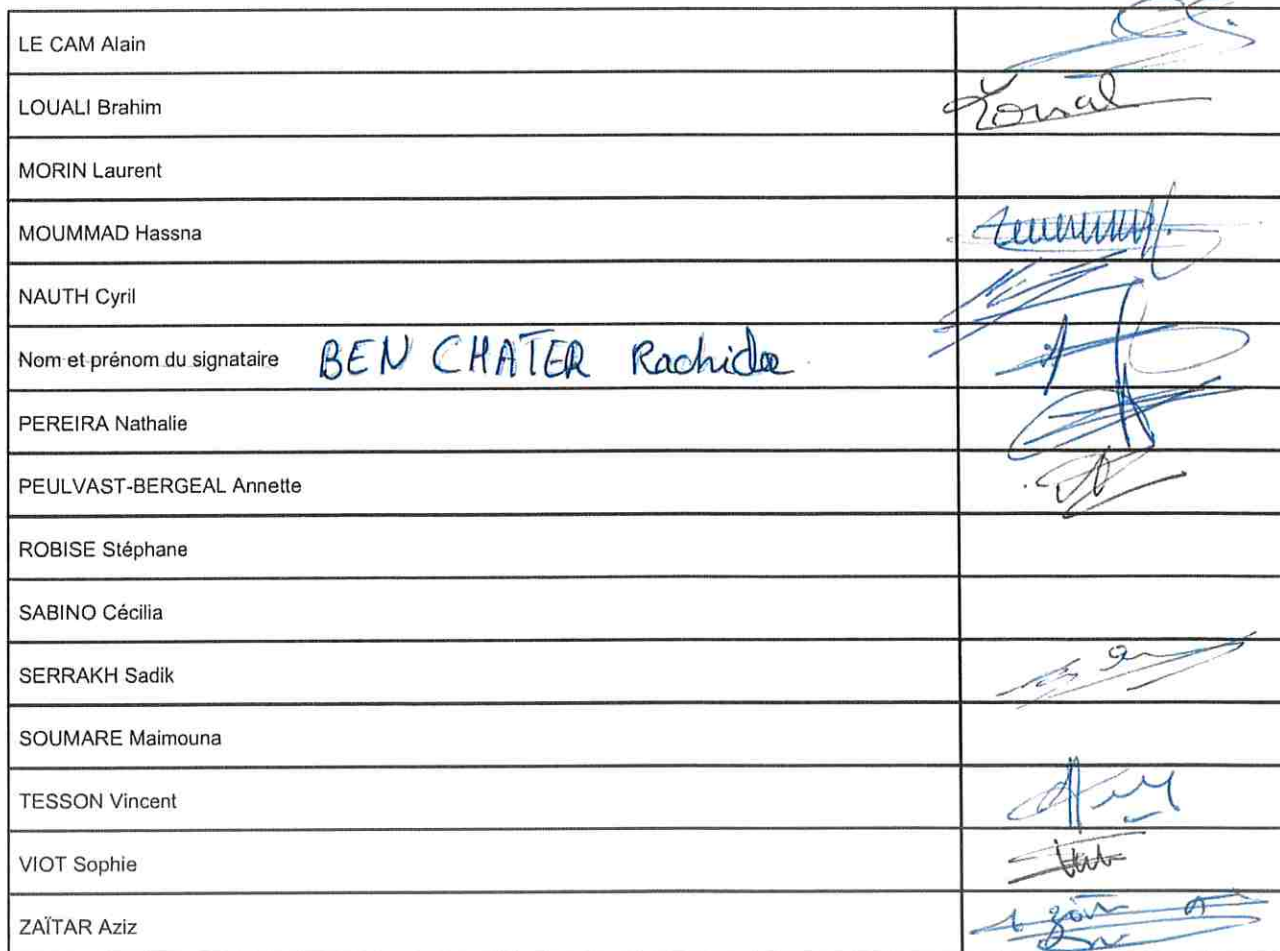 LE CAM Alain
LOUALI Brahim
MORIN Laurent
MOUMMAD Hassna
NAUTH Cyril
Nom et prénom du signataire BEN CHATER Rachida
PEREIRA Nathalie
PEULVAST-BERGEAL Annette
ROBISE Stéphane
SABINO Cécilia
SERRAKH Sadik
SOUMARE Maimouna
TESSON Vincent
VIOT Sophie
ZAÏTAR Aziz